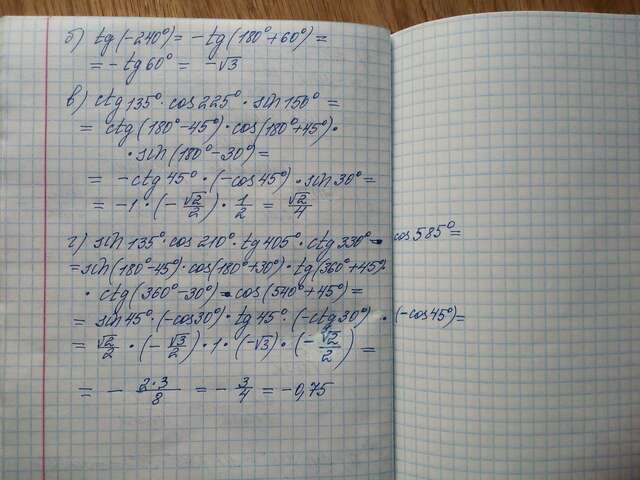 б) tg(-240°) = -tg(180°+60°) =
= -tg60° = -√3
в) ctg135° · cos225° · sin150° =
= ctg(180°-45°) · cos(180°+45°) ·
· sin(180°-30°) =
= -ctg45° · (-cos45°) · sin30° =
= -1 · (-√2/2) · 1/2 = √2/4
г) sin135° · cos210° · tg405° · ctg330° · cos585° =
= sin(180°-45°) · cos(180°+30°) · tg(360°+45°) ·
· ctg(360°-30°) · cos(540°+45°) =
= sin45° · (-cos30°) · tg45° · (-ctg30°) · (-cos45°) =
= √2/2 · (-√3/2) · 1 · (-√3) · (-√2/2) =
= - 2·3/8 = -3/4 = -0,75